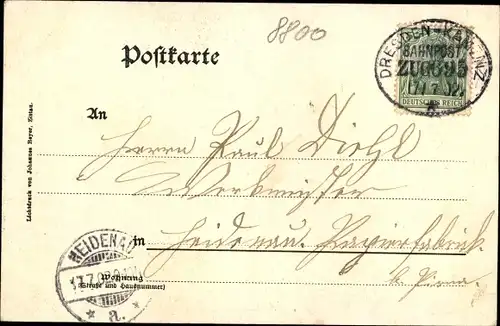 8800
Postkarte
DRESDEN-KAMENZ
BAHNPOST
ZUG 695
17 7 02
DEUTSCHES REICH
An
Herrn Paul Diehl
Werkmeister
in Heidenau. Papierfabrik.
b. Pirna.
HEIDENAU
17.7.02
* a. *
Wohnung
(Straße und Hausnummer)
Lichtdruck von Johannes Beyer, Zittau.